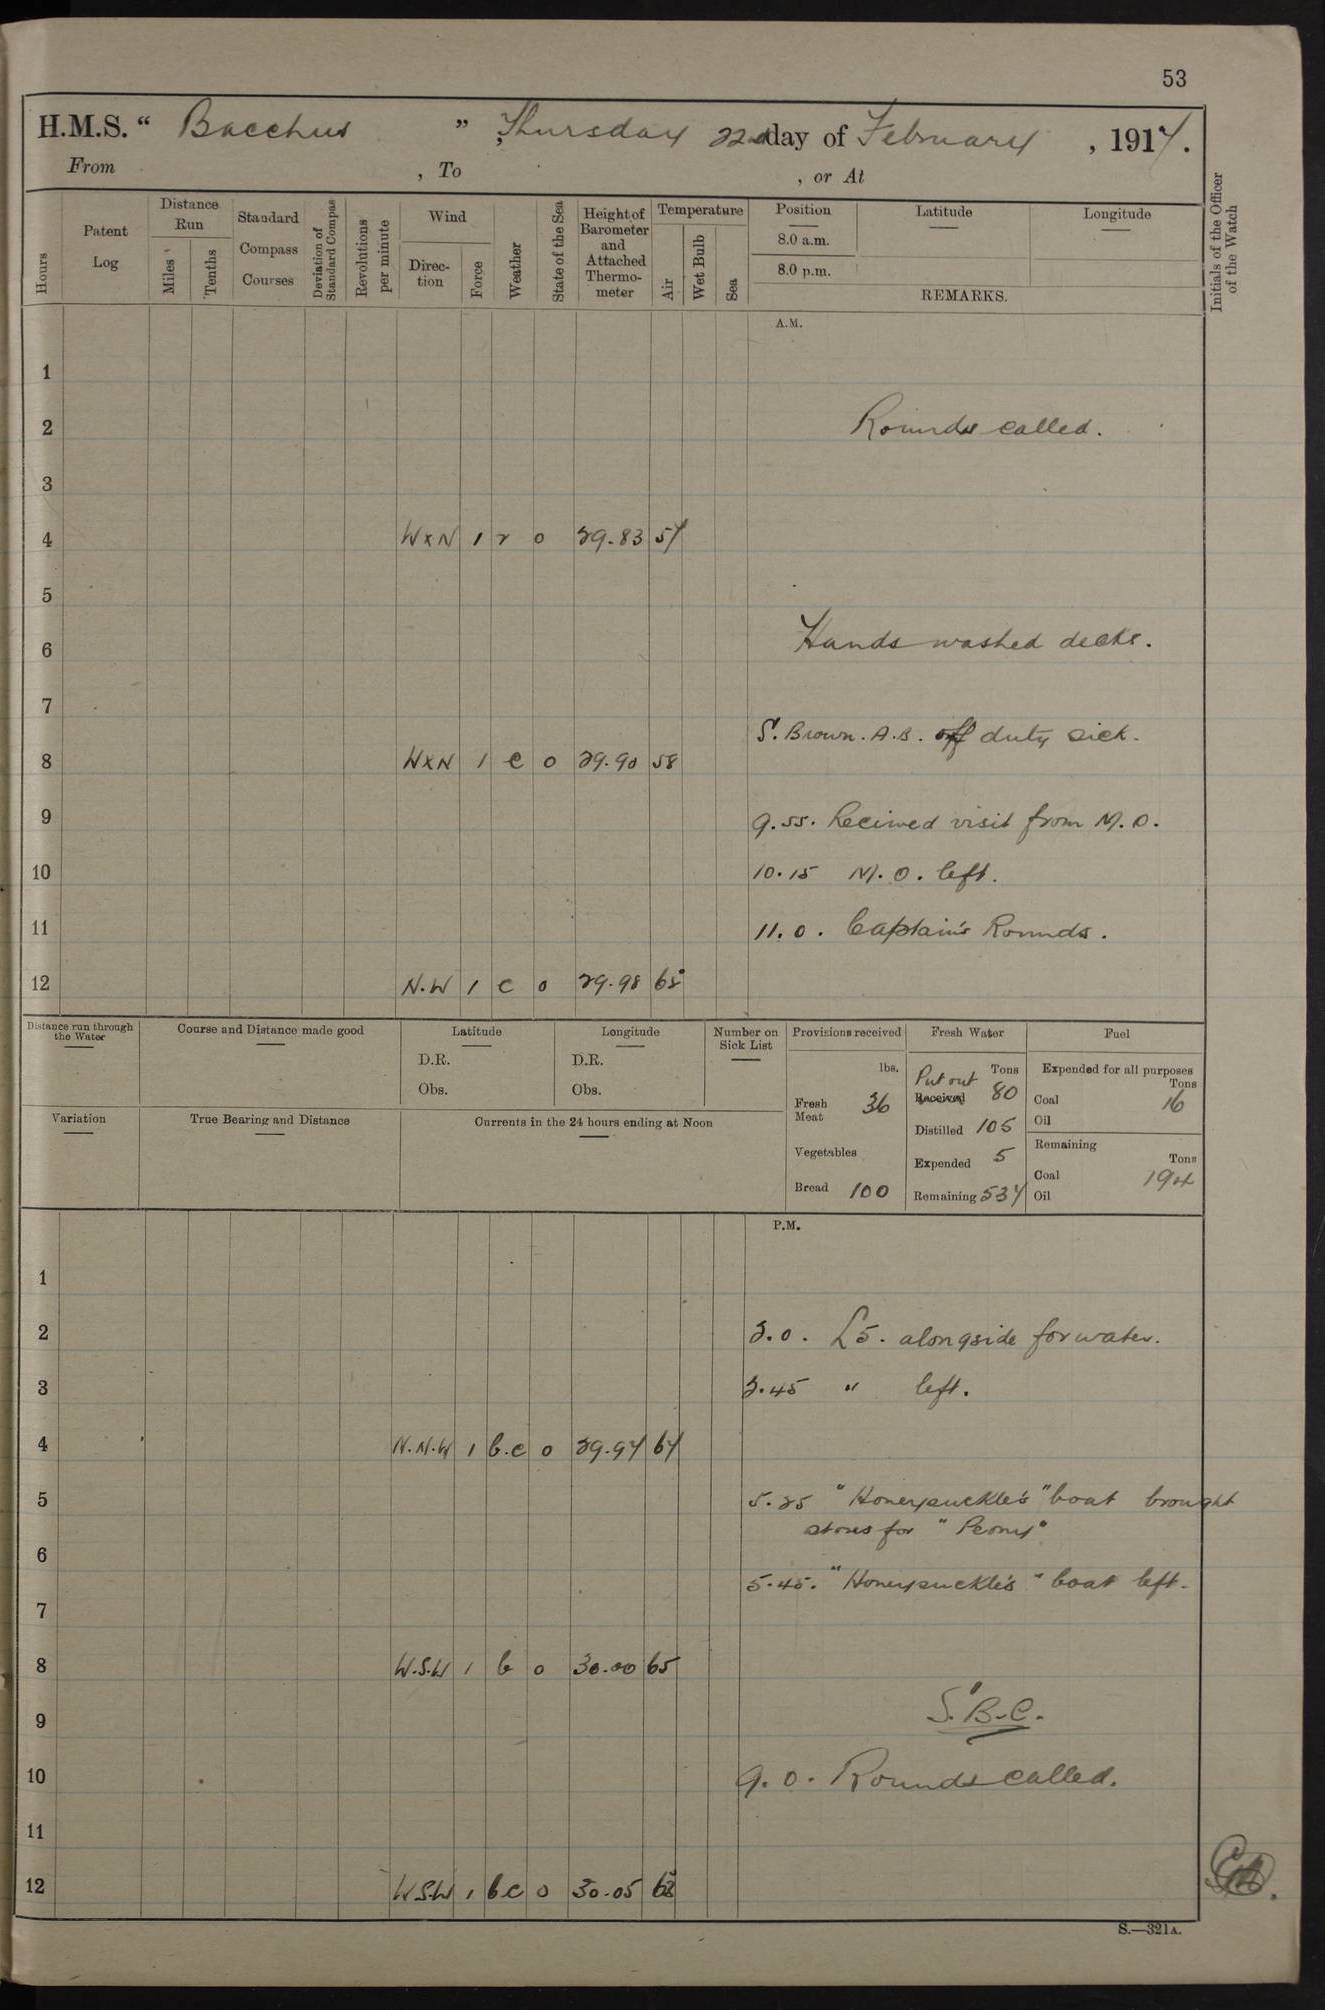 53
H.M.S. " Bacchus ", Thursday 22nd day of February, 1917.
From , To , or At
Hours
Patent Log
Distance Run
Miles
Tenths
Standard Compass Courses
Deviation of Standard Compass
Revolutions per minute
Wind
Direction
Force
Weather
State of the Sea
Height of Barometer and Attached Thermometer
Temperature
Air
Wet Bulb
Sea
Position
Latitude
Longitude
8.0 a.m.
8.0 p.m.
REMARKS.
Initials of the Officer of the Watch
A.M.
1
2 Rounds called.
3
4 WxN 1 r 0 29.83 57
5
6 Hands washed decks.
7
S. Brown. A.B. off duty sick.
8 WxN 1 c 0 29.90 58
9 9.55. Received visit from M.O.
10 10.15 M.O. left.
11 11.0. Captain's Rounds.
12 N.W 1 c 0 29.98
Distance run through the Water
Course and Distance made good
Latitude
D.R.
Obs.
Longitude
D.R.
Obs.
Number on Sick List
Variation
True Bearing and Distance
Currents in the 24 hours ending at Noon
Provisions received
lbs.
Fresh Meat 36
Vegetables
Bread 100
Fresh Water
Tons
Put out Received 80
Distilled 105
Expended 5
Remaining 537
Fuel
Expended for all purposes
Tons
Coal 16
Oil
Remaining
Tons
Coal 194
Oil
P.M.
1
2 3.0. L5. alongside for water.
3 3.45 " left.
4 N.N.W 1 b.c 0 29.97 67
5 5.25 "Honeysuckle's" boat brought
stores for "Peony"
6
5.45. "Honeysuckle's" boat left.
7
8 W.S.W 1 b 0 30.00 65
9 S.B.C.
10 9.0. Rounds called.
11
12 W.S.W 1 b.c 0 30.05
S.—321A.